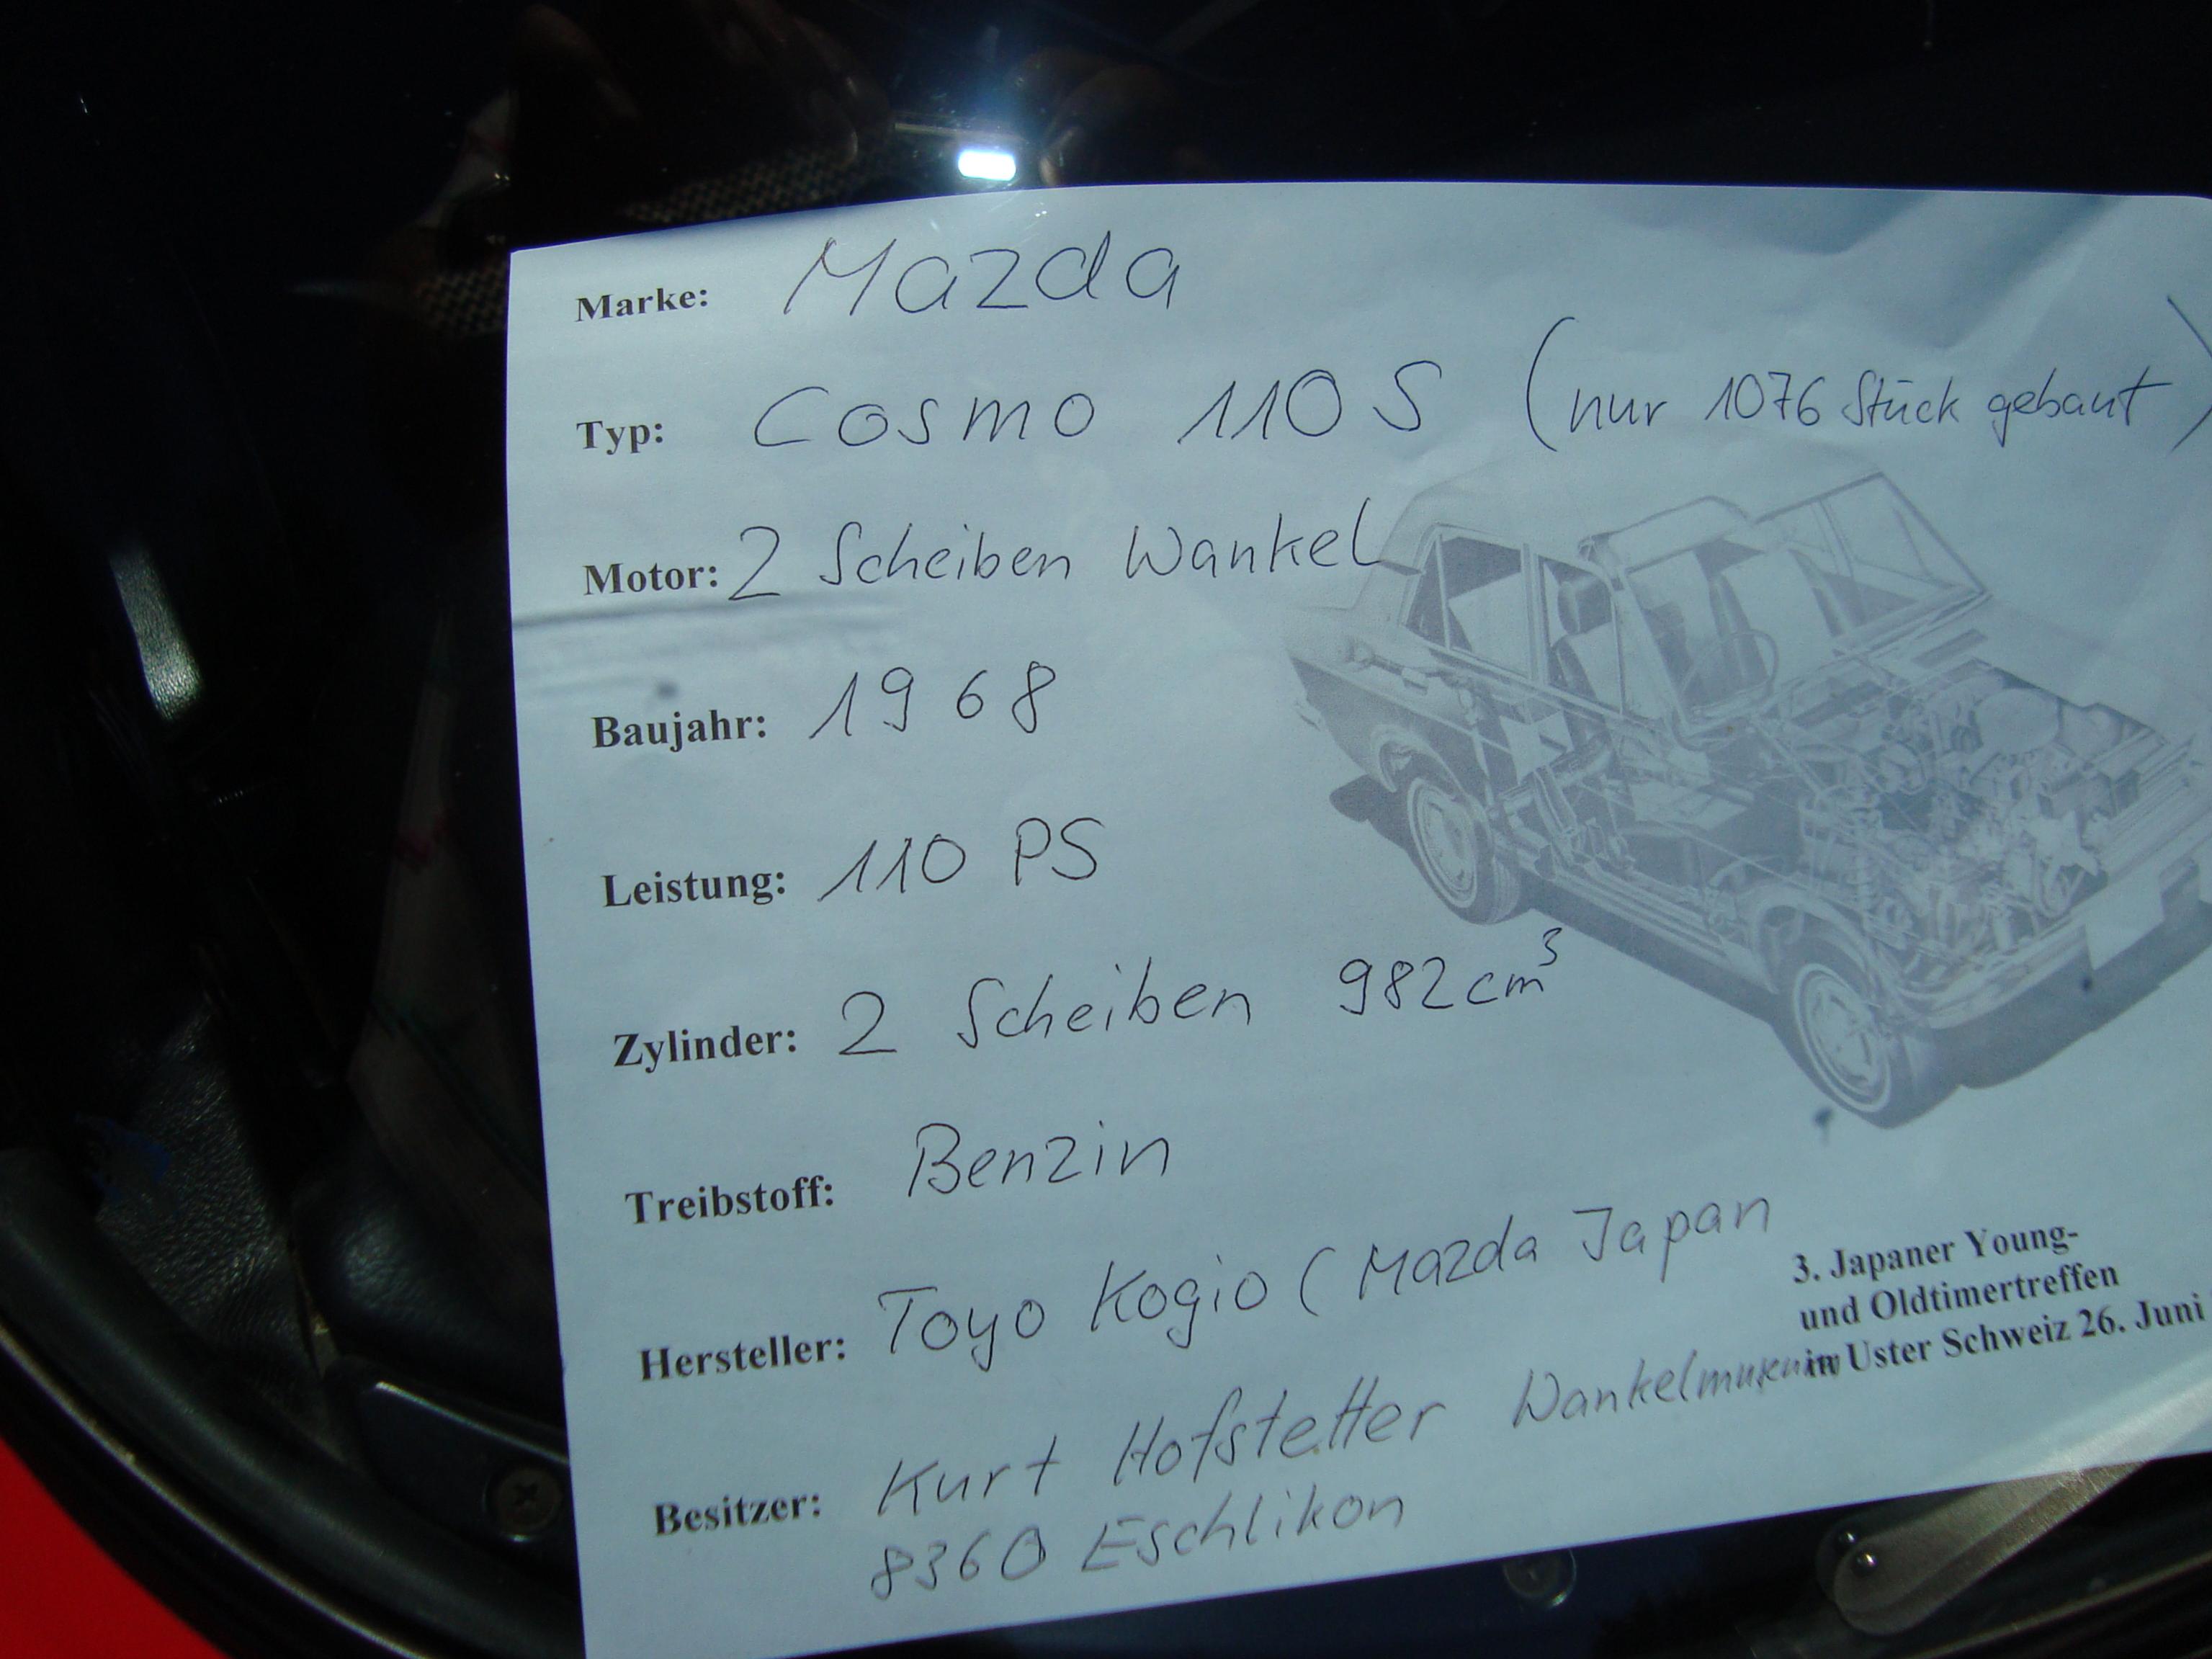 Marke: Mazda
Typ: Cosmo 110 S (nur 1076 Stück gebaut)
Motor: 2 Scheiben Wankel
Baujahr: 1968
Leistung: 110 PS
Zylinder: 2 Scheiben 982 cm³
Treibstoff: Benzin
Hersteller: Toyo Kogio (Mazda Japan
Besitzer: Kurt Hofstetter Wankelmuseum
8360 Eschlikon
3. Japaner Young-
und Oldtimertreffen
in Uster Schweiz 26. Juni